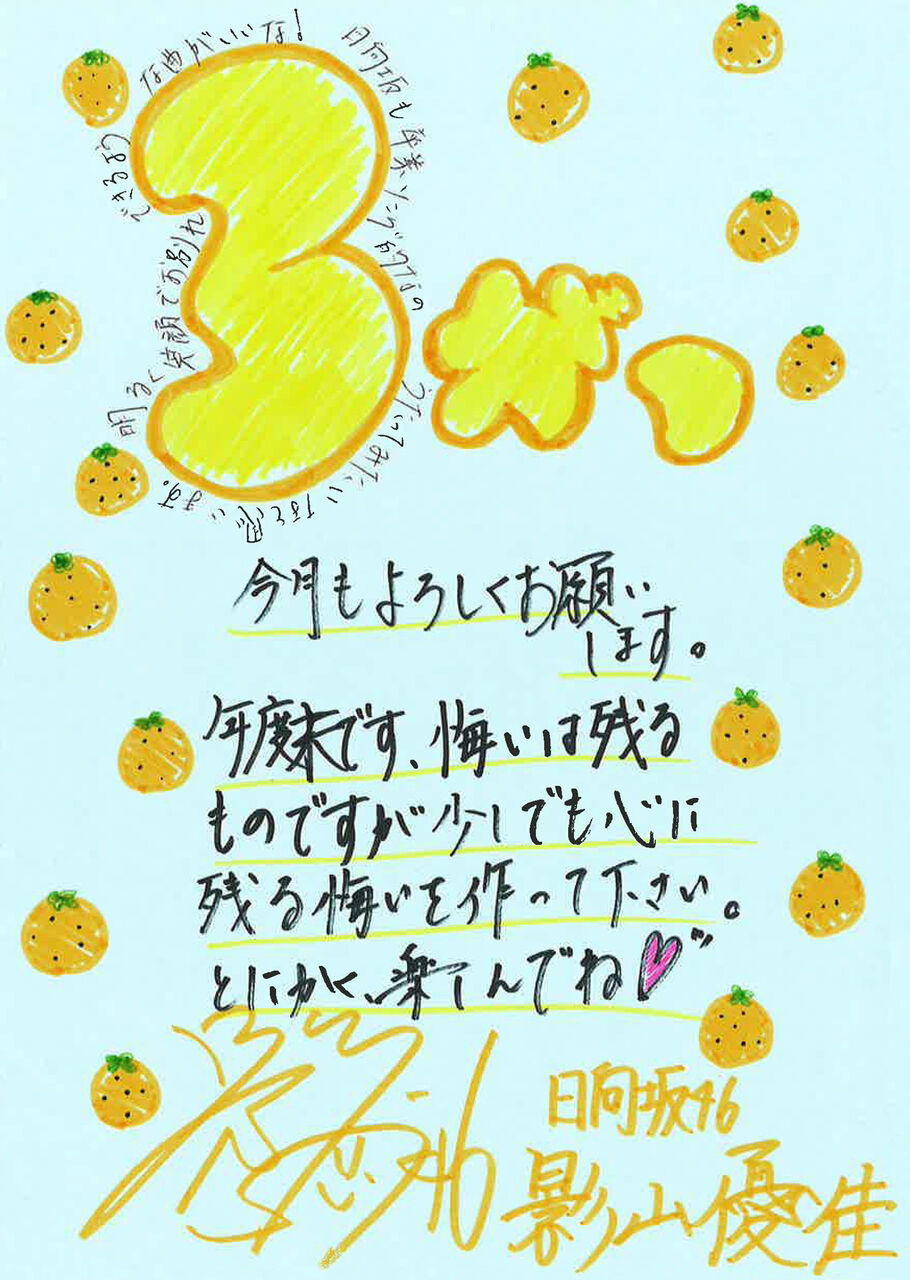 3がつ
日向坂も卒業ソング的なの
うたってみたいなと思います。
明るく笑顔でお別れ
できるような曲がいいな!
今月もよろしくお願い
します。
年度末です、悔いは残る
ものですが少しでも心に
残る悔いを作って下さい。
とにかく、楽しんでね
日向坂46
影山優佳